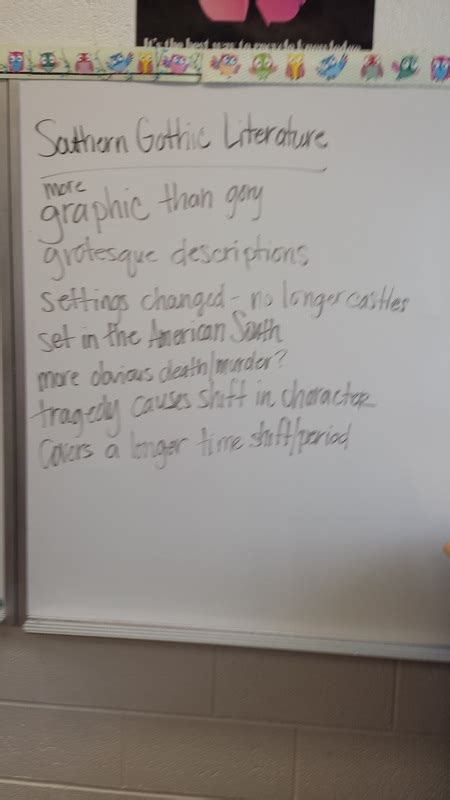 It's the best way to provoke knowledge
Southern Gothic Literature
more
graphic than gory
grotesque descriptions
settings changed - no longer castles
set in the American South
more obvious death/murder?
tragedy causes shift in character
Covers a longer time shift/period